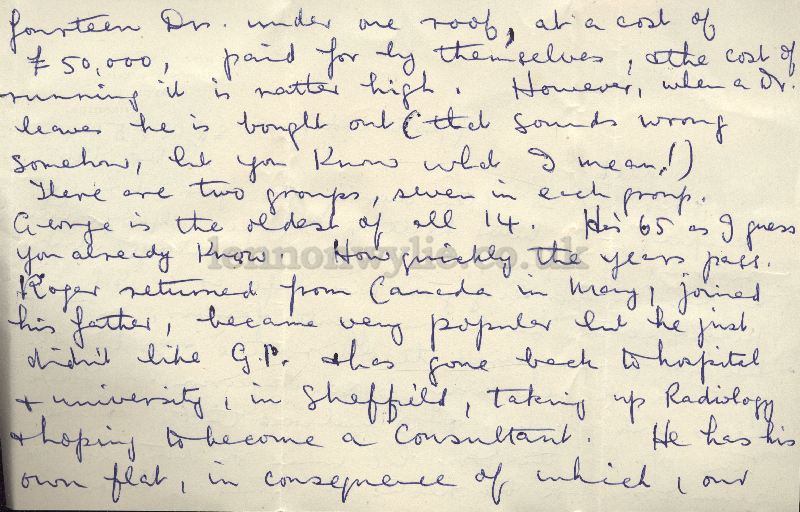 fourteen Drs. under one roof, at a cost of
£50,000, paid for by themselves, & the cost of
running it is rather high. However, when a Dr.
leaves he is bought out (that sounds wrong
somehow, but you know what I mean!)
There are two groups, seven in each group.
George is the oldest of all 14. He's 65 as I guess
you already know. How quickly the years pass.
lennonwylie.co.uk
Roger returned from Canada in May, joined
his father, became very popular but he just
didn't like G.P. & has gone back to hospital
& university, in Sheffield, taking up Radiology
& hoping to become a Consultant. He has his
own flat, in consequence of which, our